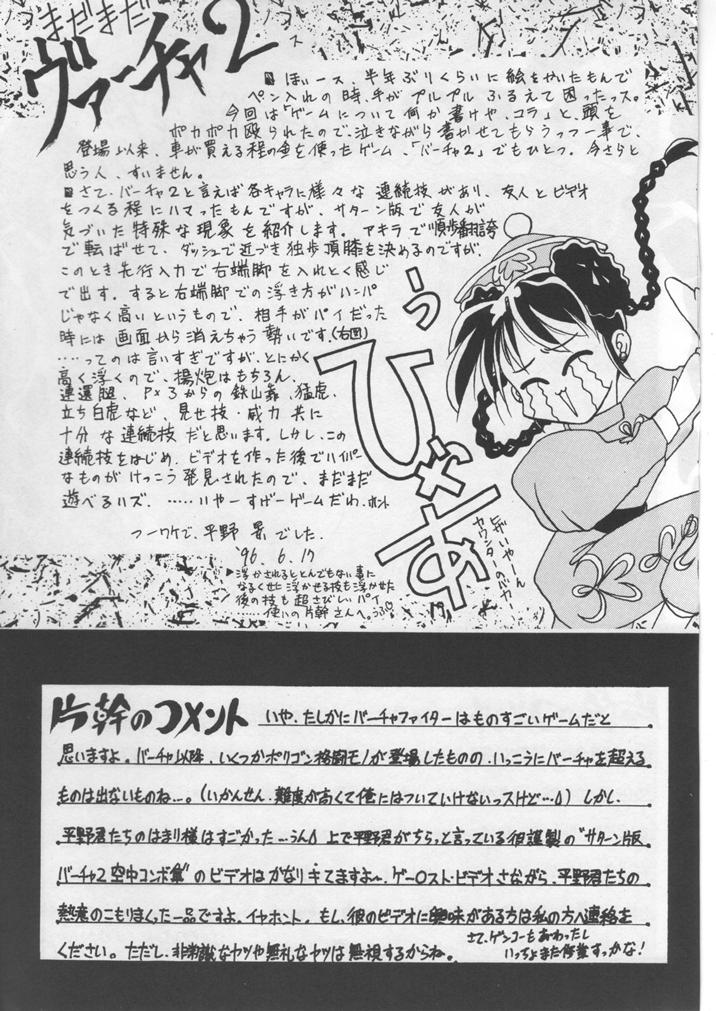 まだまだ
ヴァーチャ2
■ほぃース、半年ぶりくらいに絵をかいたもんで
ペン入れの時、手がプルプルふるえて困ったっス。
今回は「ゲームについて何か書けや、コラ」と、頭を
ポカポカ殴られたので、泣きながら書かせてもらうっつー事で、
登場以来、車が買える程の金を使ったゲーム、「バーチャ2」でもひとつ。今さらと
思う人、すいません。
■さて、バーチャ2と言えば各キャラに様々な連続技があり、友人とビデオ
をつくる程にハマったもんですが、サターン版で友人が
気づいた特殊な現象を紹介します。アキラで順歩翻誇
で転ばせて、ダッシュで近づき独歩頂膝を決めるのですが、
このとき先行入力で右端脚を入れとく感じ
で出す。すると右端脚での浮き方がハンパ
じゃなく高いというもので、相手がパイだった
時には画面から消えちゃう勢いです。(右図)
……ってのは言いすぎですが、とにかく
高く浮くので、揚炮はもちろん、
連還腿、PK3からの鉄山靠、猛虎、
立ち白虎など、見せ技・威力共に
十分な連続技だと思います。しかし、この
連続技をはじめ、ビデオを作った後でハイパー
なものがけっこう発見されたので、まだまだ
遊べるハズ。……いやーすげーゲームだわ、ホント
つーワケで、平野 景でした。
'96.6.17
▶浮かされるととんでもない事に
なるくせに浮かせる技も浮かせた
後の技も超さびしいパイ
……使いの片幹さんへ。うふ♡
うっ
ひゃあ
ヒザいやーん
カウンターのバカ
片幹のコメント
いや、たしかにバーチャファイターはものすごいゲームだと
思いますよ。バーチャ以降、いくつかポリゴン格闘モノが登場したものの、いっこうにバーチャを超える
ものは出ないものね…。(いかんせん、難度が高くて俺にはついていけないっスけど…) しかし、
平野君たちのはまり様はすごかった…うん 上で平野君がちらっと言っている彼謹製の“サターン版
バーチャ2空中コンボ集”のビデオはかなりキてますよ〜。ゲーOスト・ビデオさながら、平野君たちの
熱意のこもりまくった一品ですよ、イヤホント。もし、彼のビデオに興味がある方は私の方へ連絡を
ください。ただし、非常識なヤツや無礼なヤツは無視するからね。
さて、ゲンコーもあわったし
いっちょまた修業すっかな!